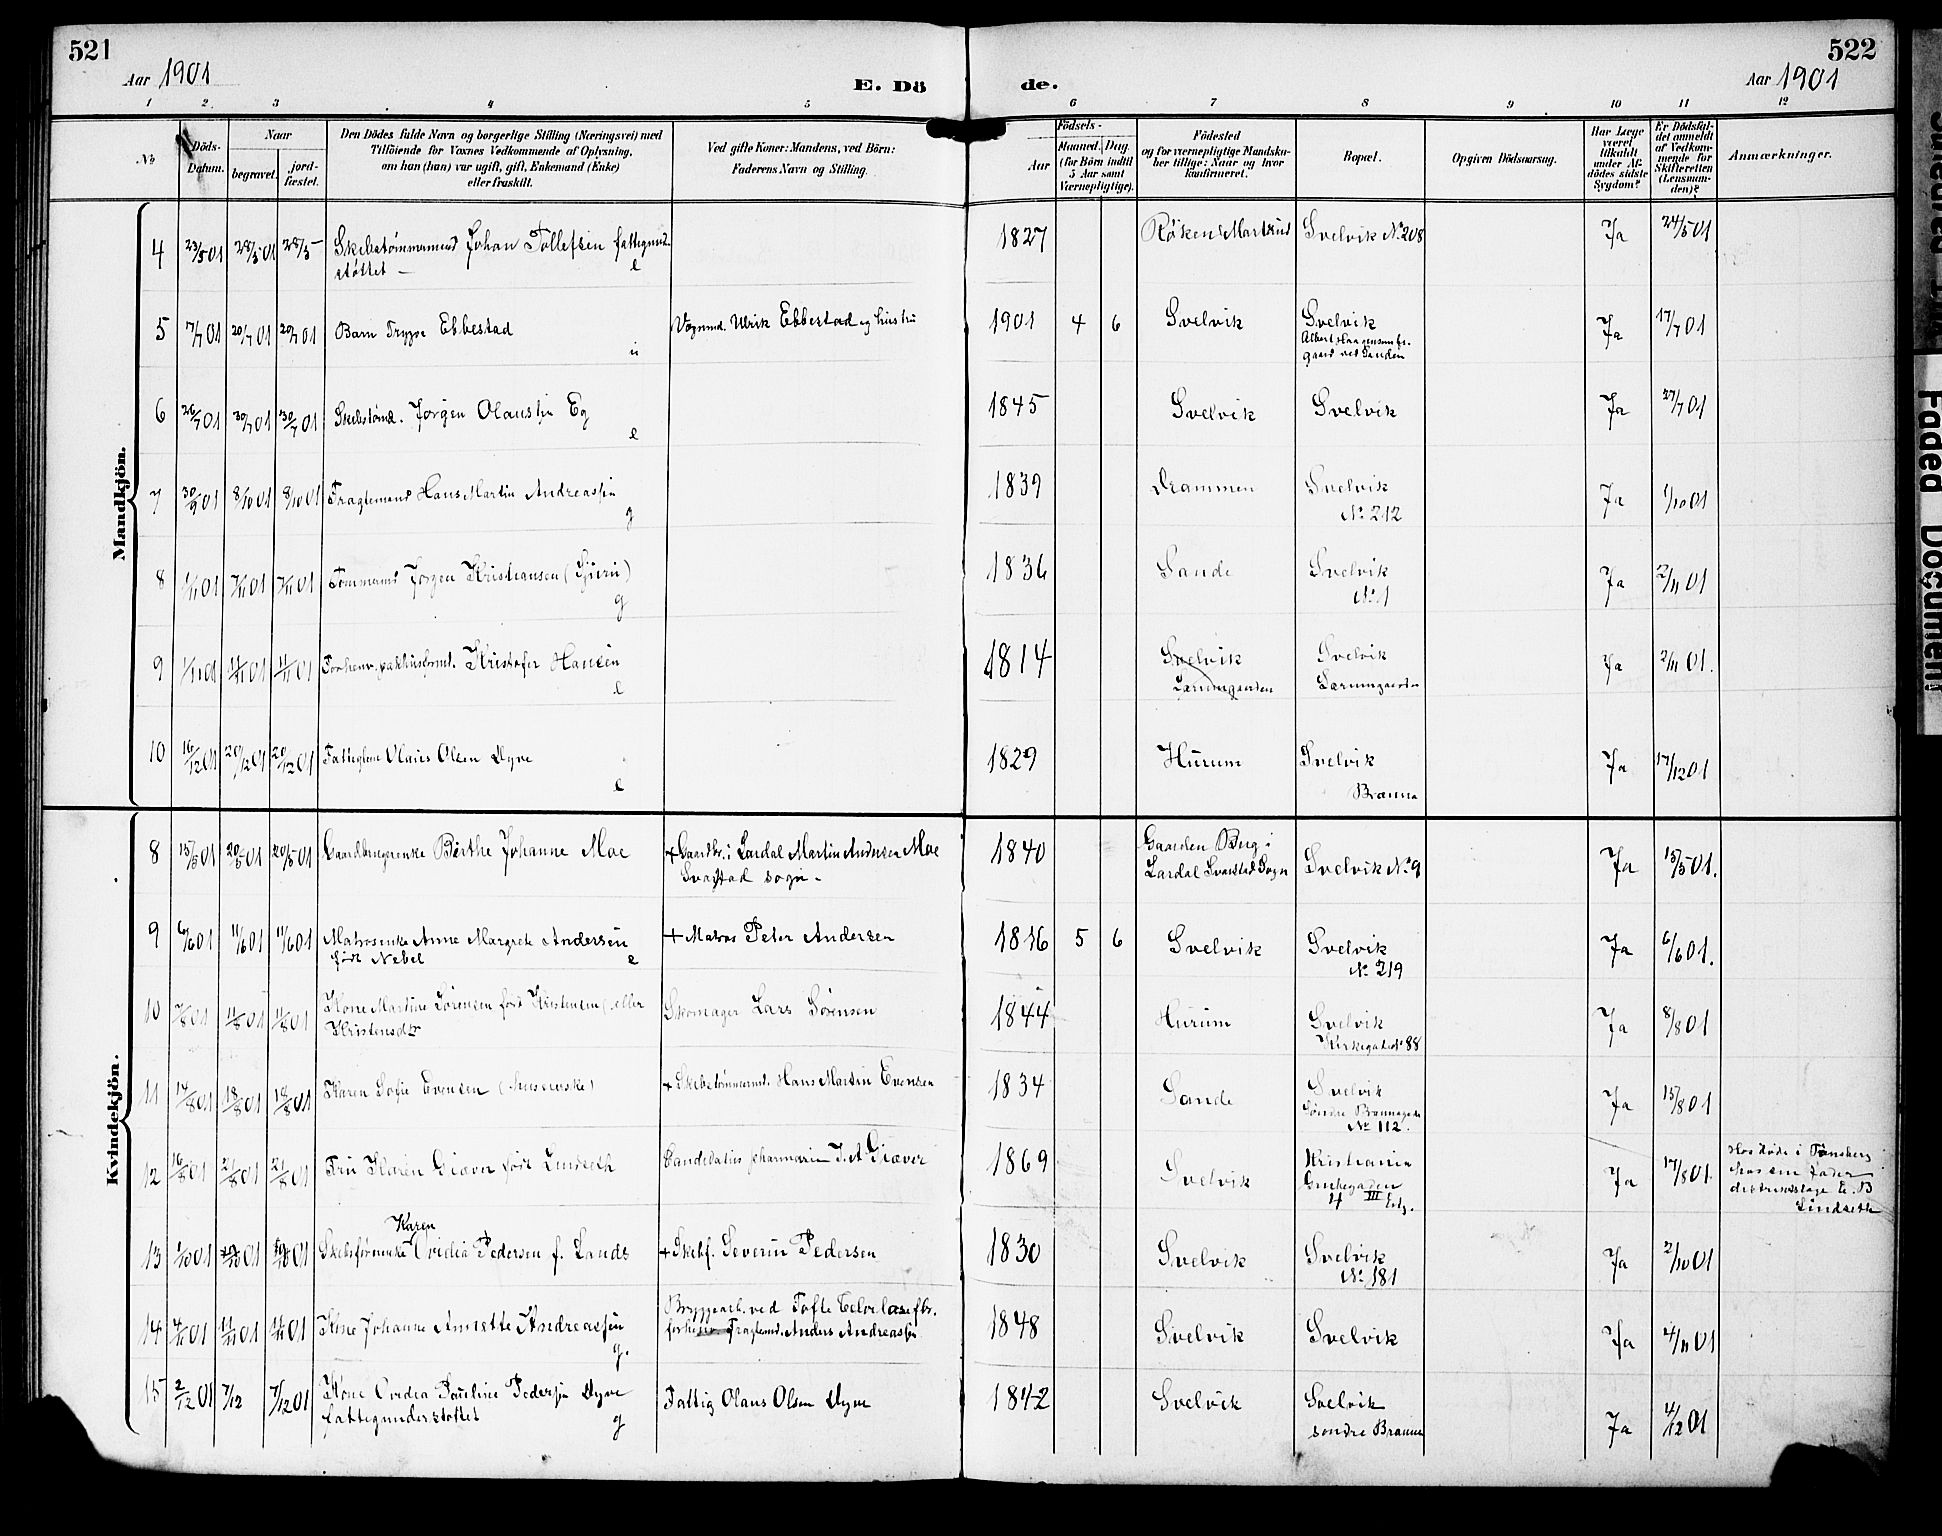 521
Aar 1901
E. Dö
de.
522
Aar 1901
1 2. 3 4 5 6 7 8 9 10 11 12
No
Döds-
Datum.
Naar
begravet.
jord-
fæstet.
Den Dödes fulde Navn og borgerlige Stilling (Næringsvei) med
Tilföiende for Voxnes Vedkommende af Oplysning,
om han (hun) var ugift, gift, Enkemand (Enke)
eller fraskilt.
Ved gifte Koner: Mandens, ved Börn:
Faderens Navn og Stilling.
Födsels-
Aar
Maaned. Dag.
(for Börn indtil
5 Aar samt
Værnepligtige).
Födested
og for værnepligtige Mandsku-
ber tillige: Naar og hvor
konfirmeret.
Bopæl.
Opgiven Dödsaarsag.
Har Læge
været
tilkaldt
under Af-
dödes sidste
Sygdom?
Er Dödsfal-
det anmeldt
af Vedkom-
mende for
Skifteretten
(Lensman-
den)?
Anmærkninger.
Mandkjön.
4 23/5 01 28/5 01 28/5 – Skibstømmermand Johan Tollefsen fattigund- 1827 Röken Svelvik No 208 Ja 24/5 01
støttet – e
5 17/7 01 20/7 01 20/7 01 Barn Trygve Ebbestad Ulrik Ebbestad og hustru 1901 4 6 Svelvik Svelvik Ja 17/7 01
u
gaard ved Sanden
6 26/7 01 30/7 01 30/7 01 Skibstømd. Jørgen Olaussen Eg 1845 Svelvik Svelvik Ja 27/7 01
e
7 30/9 01 8/10 01 8/10 01 Fragtemand Hans Martin Andreassen 1839 Drammen Svelvik Ja 1/10 01
g No 212
8 1/11 01 7/11 01 7/11 01 Tømmermand Jørgen Kristiansen 1836 Sande Svelvik Ja 2/11 01
g No 1
9 1/11 01 11/11 01 11/11 01 Forhenv. pakhusformd. Kristofer Hansen 1814 Svelvik Svelvik Ja 2/11 01.
e Lærumgaarden Lærumgaarden
10 16/12 01 20/12 01 20/12 01 Fattiglem Olaus Olsen Dyve 1829 Hurum Svelvik Ja 17/12 01
e Brænna
Kvindekjön.
8 15/5 01 20/5 01 20/5 01 Gaardbrugerenke Berthe Johanne Moe + Gaardbr. i Lardal Martin Andersen Moe 1840 Gaarden Berg i Svelvik No 9 Ja 15/5 01.
Svarstad sogn – Lardal Svarstad Sogn
9 6/6 01 11/6 01 11/6 01 Matrosenke Anne Margrete Andersen + Matros Peter Andersen 1816 5 6 Svelvik Svelvik Ja 6/6 01.
født Nebel e No 219
10 7/8 01 11/8 01 11/8 01 Kone Martine Sørensen født Kristensen (eller Skomager Lars Sørensen 1844 Hurum Svelvik Ja 8/8 01
Kristensdtr Kirkegade No 88
11 14/8 01 18/8 01 18/8 01 Karen Sofie Evensen + Skibstømmermd. Hans Martin Evensen 1834 Sande Svelvik Ja 15/8 01
Søndre Brænnagade
No 112.
12 16/8 01 21/8 01 21/8 01 Fru Karen Giæver født Lindseth Candidatus pharmaciæ J. A Giæver 1869 Svelvik Kristiania Ja 17/8 01 døde i Tønsberg
hos sin fader
4 III Etg. distriktslæge E. B
Lindseth
13 1/10 01 Skibsførerenke Karen Ovidia Pedersen f. Lands + Skibf. Severin Pedersen 1830 Svelvik Svelvik Ja 2/10 01
No 181
14 4/11 01 11/11 01 11/11 01 Kone Johanne Annette Andreassen Bryggearb. ved Tofte Cellulosefbr. 1848 Svelvik Svelvik Ja 4/11 01
g. Fragtemd. Anders Andreassen
15 2/12 01 7/12 7/12 01 Kone Ovidia Pauline Pedersen Dyve Fattig Olaus Olsen Dyve 1842 Svelvik Svelvik Ja 4/12 01
fattigunderstøttet g søndre Brænna
Faded Document